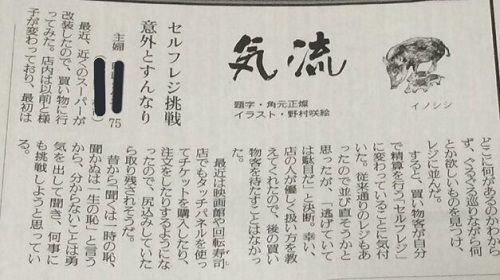 イノシシ
気流
題字・角元正燦
イラスト・野村咲絵
セルフレジ挑戦
意外とすんなり
主婦
75
最近、近くのスーパーが
改装したので、買い物に行
ってみた。店内は以前と様
子が変わっており、最初は
どこに何があるのかわから
ず、ぐるぐる巡りながら何
とか欲しいものを見つけ、
レジに並んだ。
すると、買い物客が自分
で精算を行う「セルフレジ」
に変わっていることに気付
いた。従来通りのレジもあ
ったので並び直そうかと
思ったが、「逃げていて
は駄目だ」と決断。幸い、
店の人が優しく扱い方を教
えてくれたので、後の買い
物客を待たすことはなかっ
た。
最近は映画館や回転寿司
店でもタッチパネルを使っ
てチケットを購入したり、
注文をしたりするようにな
ったので、尻込みしていた
ら取り残されそうだ。
昔から「聞くは一時の恥、
聞かぬは一生の恥」と言う
から、分からないことは勇
気を出して聞き、何事に
も挑戦しようと思ってい
る。